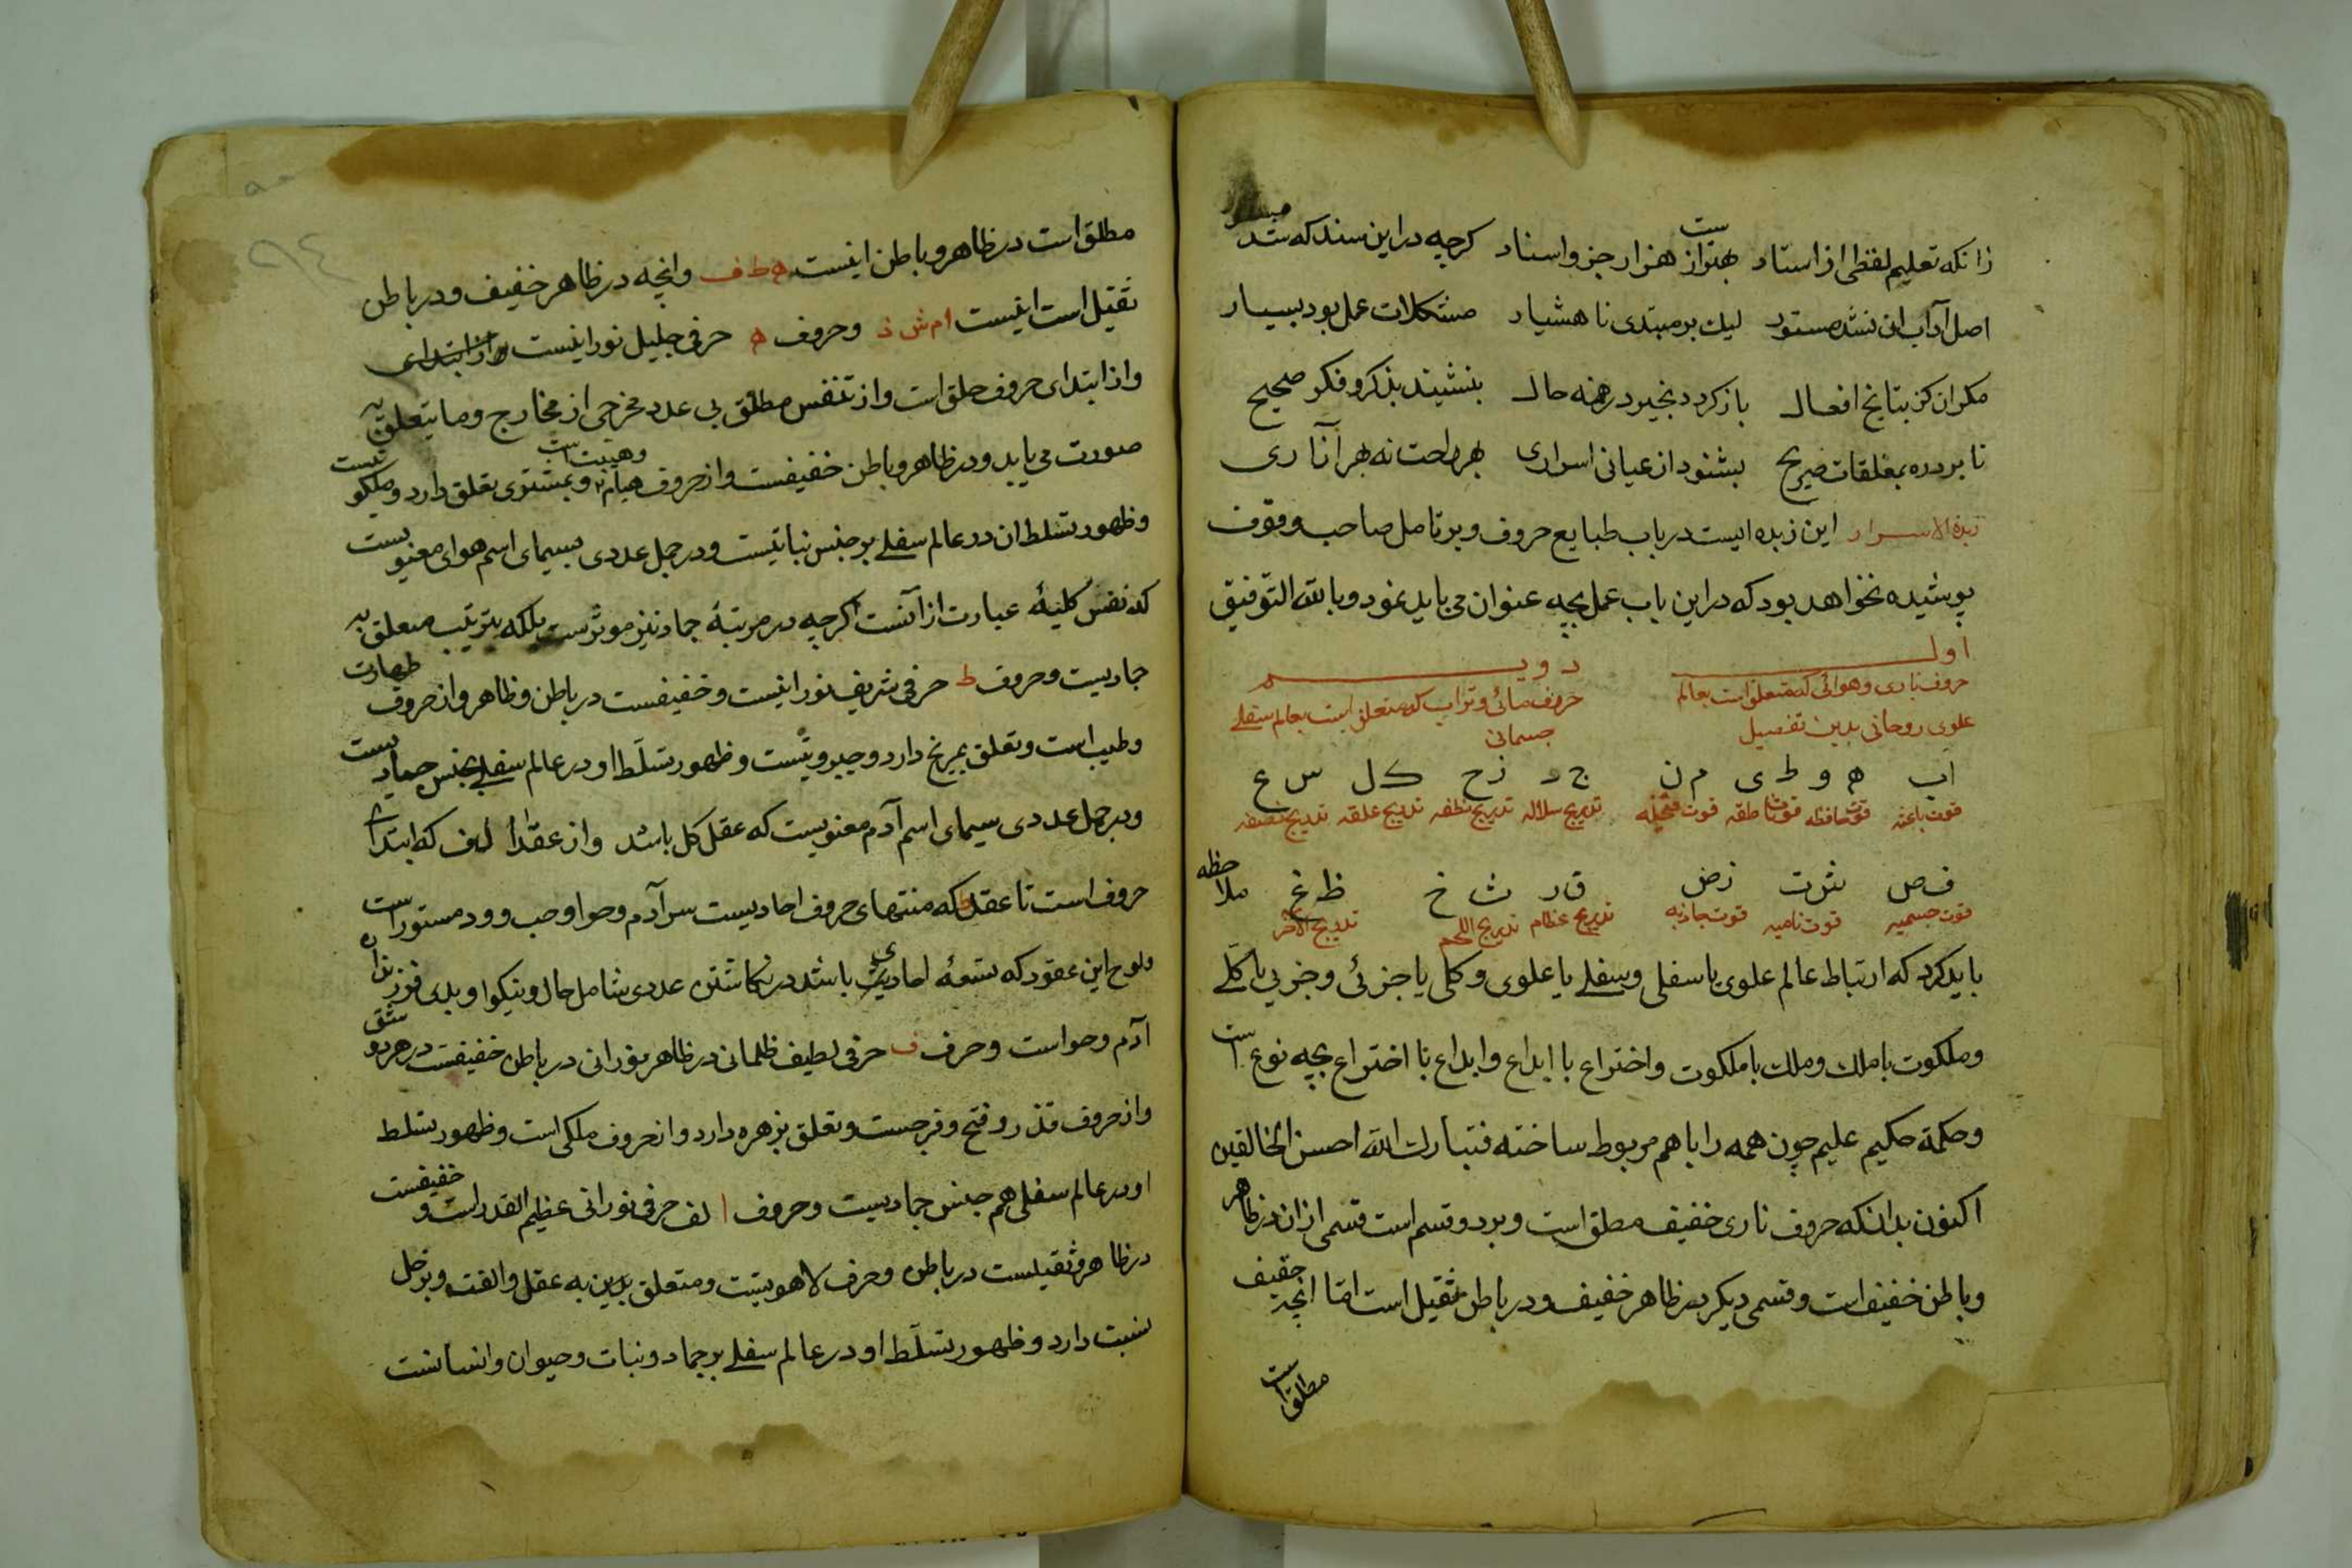 زانکه تعلیم لفظی از استاد بهتر از هزار جزو اسناد کرچه در این سند که شد
اصل آداب این نشد مستور لیک بر مبتدی نا هشیار مشکلات عمل بود بسیار
مکر ان کز نتایج افعال باز کردد بخیر در همه حال بنشیند بذکر و فکر صحیح
تا برد ره بمغلقات صریح بشنود از عیانی اسراری
زبدة الاسرار این زبده ایست در باب طبایع حروف و بر تامل صاحب وقوف
پوشیده نخواهد بود که در این باب عمل بچه عنوان می باید نمود و بالله التوفیق
اول دویم
حروف ناری و هوائی که متعلق است بعالم حروف مائی و ترابی که متعلق است بعالم سفلے
علوی روحانی بدین تفصیل جسمانی
اب ه و ط ی م ن ج د ز ح ک ل س ع
قوت باعثه قوت حافظه قوت ناطقه قوت متخیله تدریج سلاله تدریج نطفه تدریج علقه تدریج مضغه
ف ص ش ت ذ ض ق ر ث خ ظ غ ملاحظه
قوت جسمیه قوت نامیه قوت جاذبه تدریج عظام تدریج اللحم تدریج الاخر
باید کرد که ارتباط عالم علوی با سفلی و سفلے با علوی و کلی با جزئی و جزیی با کلے
و ملکوت با ملک و ملک با ملکوت و اختراع با ابداع و ابداع با اختراع بچه نوع است
و حکمة حکیم علیم چون همه را با هم مربوط ساخته فتبارک الله احسن الخالقین
اکنون بدانکه حروف ناری خفیف مطلق است و بر دو قسم است قسمی از ان در ظاهر
و باطن خفیف است و قسمی دیکر در ظاهر خفیف و در باطن ثقیل است اما انچه خفیف
مطلق است
۹٤
مطلق است در ظاهر و باطن اینست ه ط ف وانچه در ظاهر خفیف و در باطن
ثقیل است اینست ا م ش ذ و حروف ه حرفی جلیل نورانیست و از ابتدای
و از ابتدای حروف حلق است و از تنفس مطلق بی عدد مخرجی از مخارج و ما یتعلق به
صورت می یابد و در ظاهر و باطن خفیفست و از حروف هیام و هیبت است و بمشتری تعلق دارد و ملکوتیست
و ظهور تسلط ان در عالم سفلے بر جنس نباتیست و در جمل عددی بسیمای اسم هوای معنویست
که نفس کلیهٔ عبارت از آنست اکرچه در مرتبهٔ جماد نیز موثرست بلکه بترتیب متعلق به
جمادیست و حروف ط حرفی شریف نورانیست و خفیفست در باطن و ظاهر و از حروف طهارت
و طیب است و تعلق بمریخ دارد و جبروتیست و ظهور تسلّط او در عالم سفلے بجنس جمادیست
و در جمل عددی سیمای اسم آدم معنویست که عقل کل باشد و از عقد الف که ابتدای
حروف است تا عقد ط که منتهای حروف احادیست سر آدم و حوا و حب و ود مستور است
و لوح این عقود که تسعهٔ احادیست باشد در نکاشتن عددی شامل حال و نیکو او بدی فرزندان
آدم و حواست و حرف ف حرفی لطیف ظلمانی در ظاهر نورانی در باطن خفیفست در هر دو شق
و از حروف قذر و فتح و فرجست و تعلق بزهره دارد و از حروف ملکی است و ظهور تسلط
او در عالم سفلی هم جنس جمادیست و حروف ا لف حرفی نورانی عظیم القدر است و خفیفست
در ظاهر و ثقیلست در باطن و حرف لاهوتیست و متعلق بدین به عقل و الفت و بزحل
نسبت دارد و ظهور تسلّط او در عالم سفلے بر جماد و نبات و حیوان و انسانست